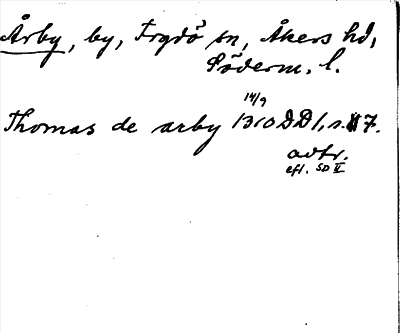 Årby, by, Frgdö sn, Åkers hd,
Söderm. l.
14/9
Thomas de arby 1310 DD 1, s. 7.
avtr.
efl. SD II